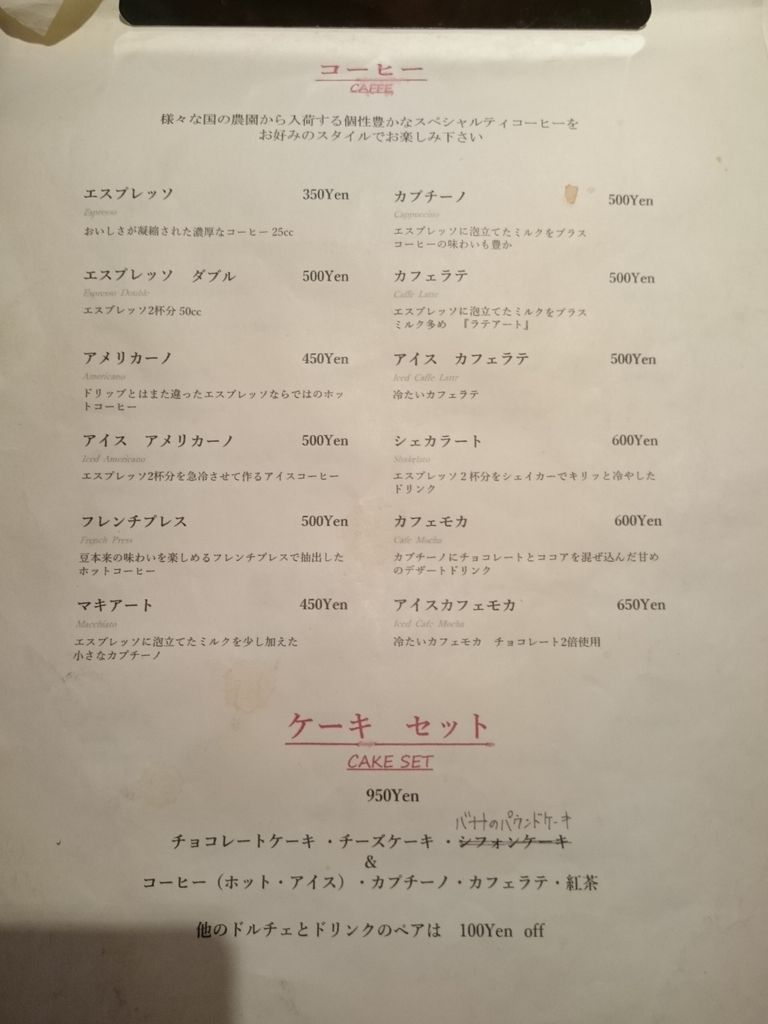 コーヒー
CAFFE
様々な国の農園から入荷する個性豊かなスペシャルティコーヒーを
お好みのスタイルでお楽しみ下さい
エスプレッソ 350Yen
Espresso
おいしさが凝縮された濃厚なコーヒー 25cc
エスプレッソ ダブル 500Yen
Espresso Double
エスプレッソ2杯分 50cc
アメリカーノ 450Yen
Americano
ドリップとはまた違ったエスプレッソならではのホッ
トコーヒー
アイス アメリカーノ 500Yen
Iced Americano
エスプレッソ2杯分を急冷させて作るアイスコーヒー
フレンチプレス 500Yen
French Press
豆本来の味わいを楽しめるフレンチプレスで抽出した
ホットコーヒー
マキアート 450Yen
Macchiato
エスプレッソに泡立てたミルクを少し加えた
小さなカプチーノ
カプチーノ 500Yen
Cappuccino
エスプレッソに泡立てたミルクをプラス
コーヒーの味わいも豊か
カフェラテ 500Yen
Caffe Latte
エスプレッソに泡立てたミルクをプラス
ミルク多め 『ラテアート』
アイス カフェラテ 500Yen
Iced Caffe Latte
冷たいカフェラテ
シェカラート 600Yen
Shakelato
エスプレッソ2杯分をシェイカーでキリッと冷やした
ドリンク
カフェモカ 600Yen
Cafe Mocha
カプチーノにチョコレートとココアを混ぜ込んだ甘め
のデザートドリンク
アイスカフェモカ 650Yen
Iced Cafe Mocha
冷たいカフェモカ チョコレート2倍使用
ケーキ セット
CAKE SET
950Yen
バナナのパウンドケーキ
チョコレートケーキ・チーズケーキ・シフォンケーキ
&
コーヒー（ホット・アイス）・カプチーノ・カフェラテ・紅茶
他のドルチェとドリンクのペアは 100Yen off